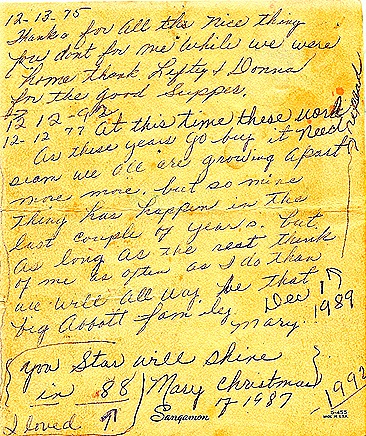 12-13-75
Thanks for all the nice thing
you dont for me while we were
home thank Lefty & Donna
for the good Supper.
12 12-92
12-12-77 At this time these word
need
As these years go buy it
seam we all are growing apart
more more. but so mine
thing has happen in the
last couple of years. but.
As long as the rest think
of me as often as I do than
we will all way be that
big Abbott family
Mary
Dec 1
1989
you Star will shine
in 88
I loved
Mary Christmas
of 1987
1992
Sangamon
S-455
MADE IN U.S.A.